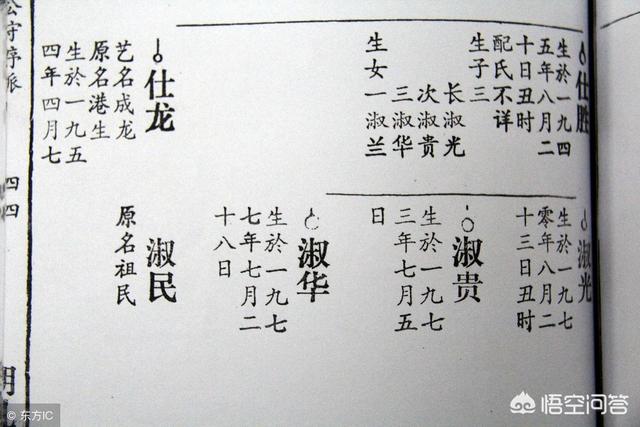 仕胜
生於一九四
五年八月二
十日丑时
配氏不详
生子三
长淑光
次淑贵
三淑华
生女一淑兰
仕龙
艺名成龙
原名港生
生於一九五
四年四月七
淑光
生於一九七
零年八月二
十三日丑时
淑贵
生於一九七
三年七月五
日
淑华
生於一九七
七年七月二
十八日
淑民
原名祖民
公守序派
四四
© 东方IC
悟空问答